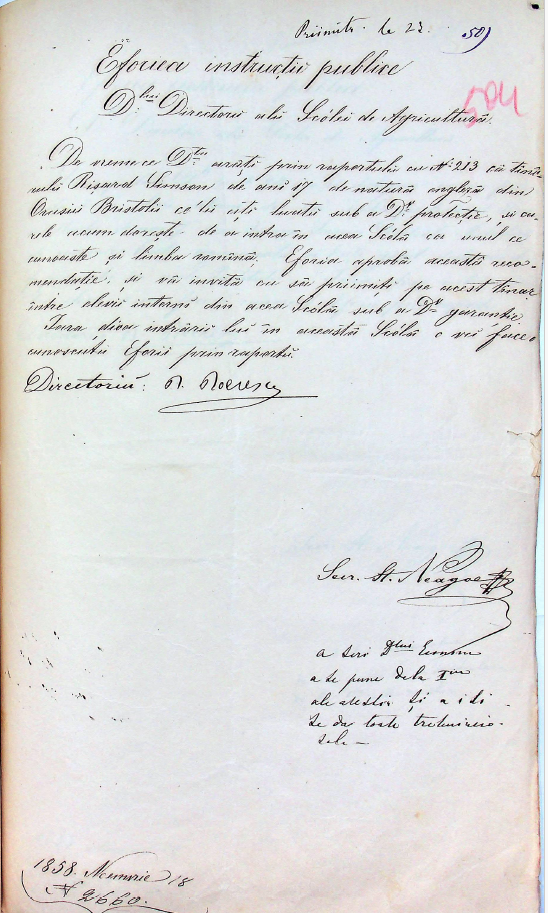 Priimit. le 23.
501
504
Eforiea instrucții publice
D.lui Directorul alu Scólei de Agricultură.
De vreme ce D.ta arăți prin raportulu cu No. 213 că tînĕ
rulu Risard Samson de ani 17 de natură angleză din
Orașii Bristolu ce'lu ați luatu sub a D.le protecție, și ca-
rele acum dorește de a intra în acea Scólă ca unul ce
cunoaște și limba romănă; Eforia aprobă această reco-
mendație. și vă invită ca să priimiți pe acest tînar,
între elevii interni din acea Scólă sub a D.le garanție
Iara dioa intrării lui în această Scólă o veți face
cunoscutŭ Eforii prin raportŭ.
Directoriŭ:
Secr. St. Neagoe
a scri D.lui Econom
a se pune dela I.iu
ale acestia și a i se
se da toate trebuincio-
sele —
1858. Noemvrie 18
No 2660.